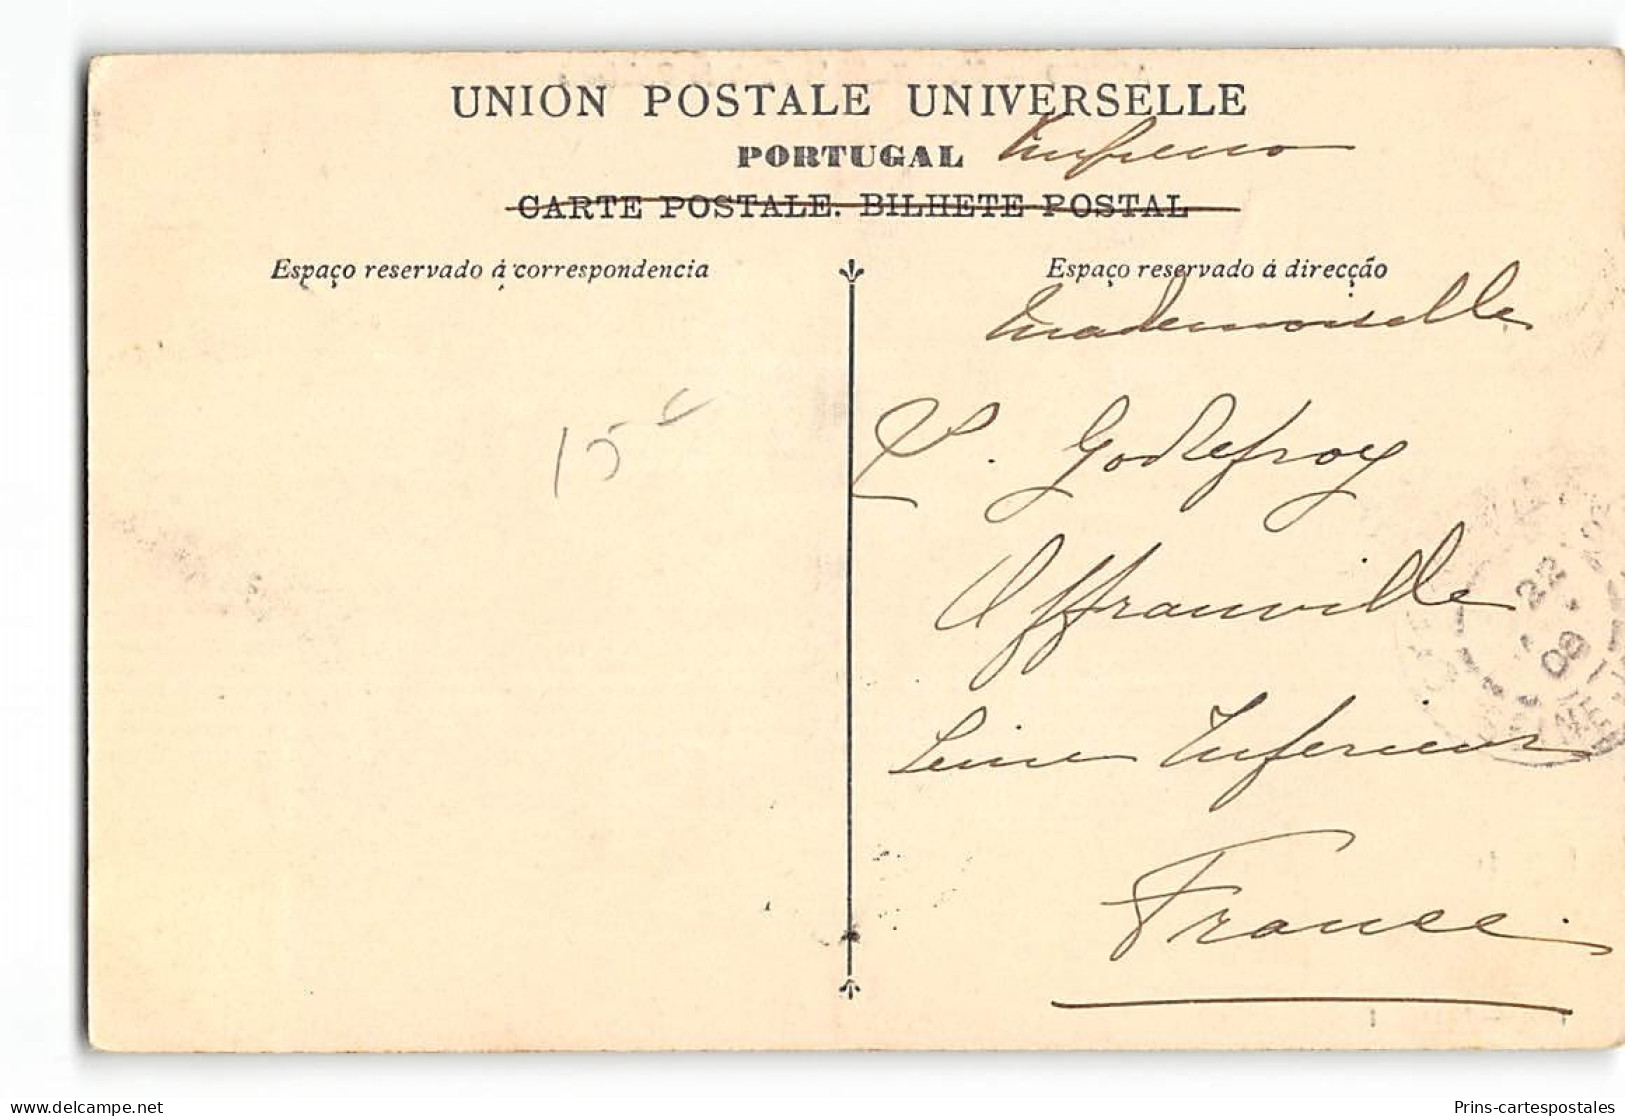 UNION POSTALE UNIVERSELLE
PORTUGAL Impresso
CARTE POSTALE. BILHETE POSTAL
Espaço reservado á correspondencia
Espaço reservado á direcção
Mademoiselle
Godefroy
15 €
Offranville
22
09
Seine Inferieure
France.
delcampe.net
Prins-cartespostales